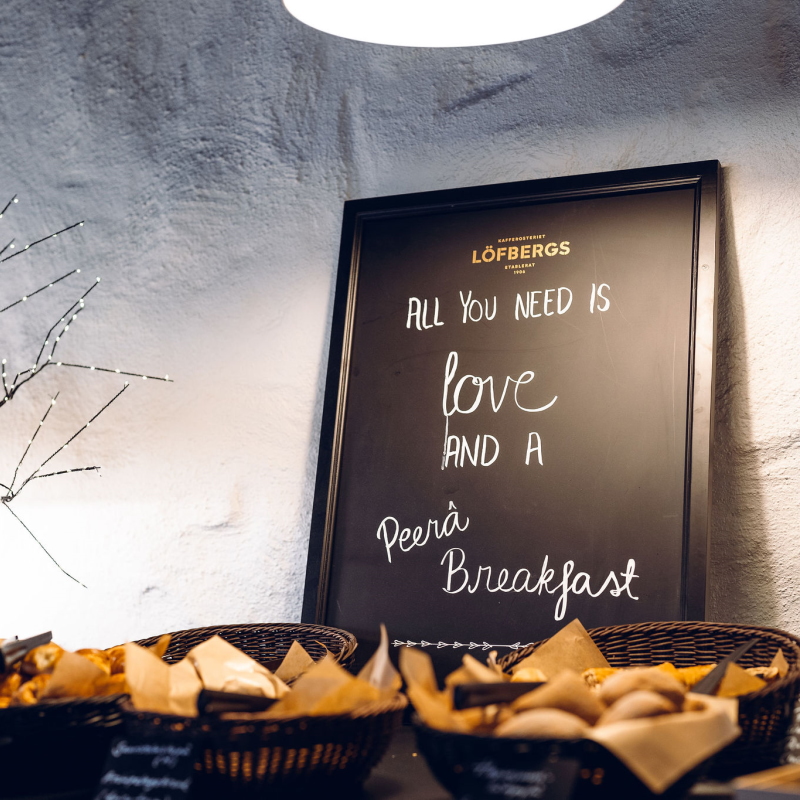 KAFFEROSTERIET
LÖFBERGS
ETABLERAT
1906
ALL YOU NEED IS
love
AND A
Peerâ
Breakfast